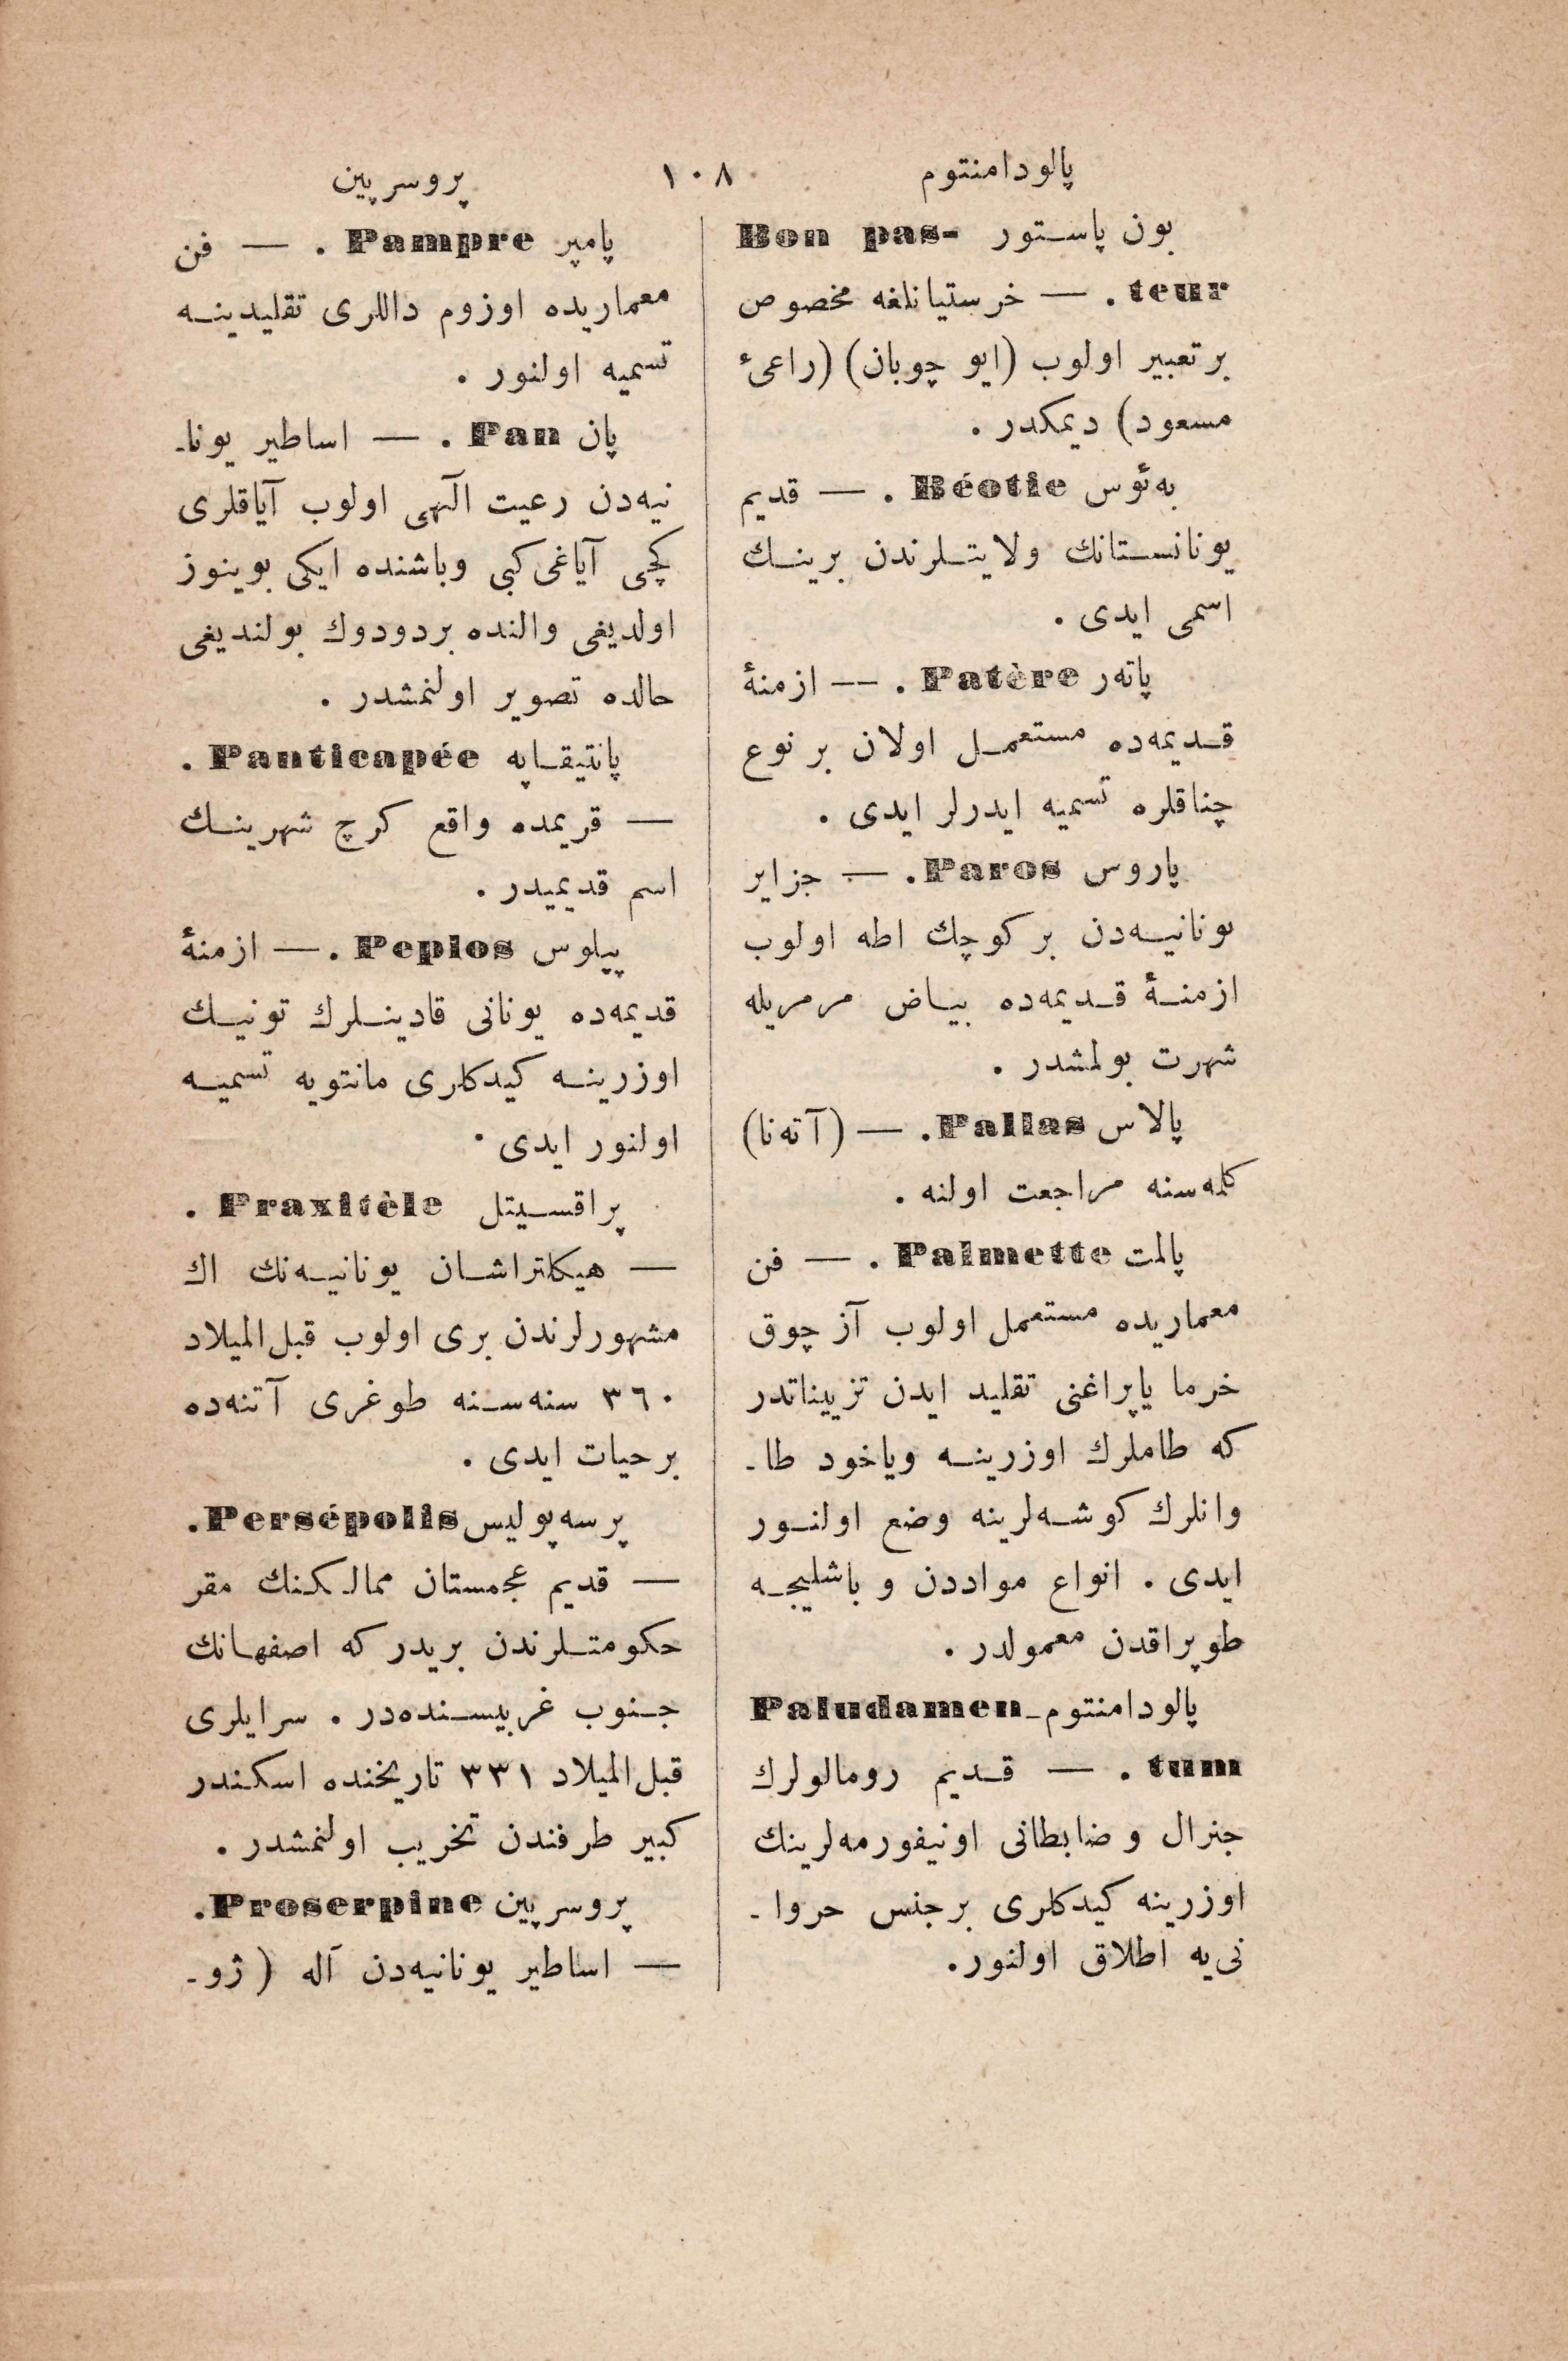 پالودامنتوم ١٠٨ پروسرپين
بون پاستور Bon pas-
teur . — خرستيانلغه مخصوص
بر تعبير اولوب (ايو چوبان) (راعئ
مسعود) ديمكدر .
به‌ئوس Béotie . — قديم
يونانستانك ولايتلرندن برينك
اسمى ايدى .
پاته‌ر Patère . — ازمنهٔ
قديمه‌ده مستعمل اولان بر نوع
چناقلره تسميه ايدرلر ايدى .
پاروس Paros. — جزاير
يونانيه‌دن بر كوچك اطه اولوب
ازمنهٔ قديمه‌ده بياض مرمريله
شهرت بولمشدر .
پالاس Pallas. — (آته‌نا)
كله‌سنه مراجعت اولنه .
پالمت Palmette . — فن
معماريده مستعمل اولوب آز چوق
خرما ياپراغنى تقليد ايدن تزييناتدر
كه طاملرك اوزرينه وياخود طا-
وانلرك كوشه‌لرينه وضع اولنور
ايدى . انواع مواددن و باشليجه
طوپراقدن معمولدر .
پالودامنتوم Paludamen-
tum . — قديم رومالولرك
جنرال و ضابطانى اونيفورمه‌لرينك
اوزرينه كيدكلرى بر جنس حروا -
نى‌يه اطلاق اولنور.
پامپر Pampre . — فن
معماريده اوزوم داللرى تقليدينه
تسميه اولنور .
پان Pan . — اساطير يونا-
نيه‌دن رعيت الٓهى اولوب آياقلرى
كچى آياغى كبى وباشنده ايكى بوينوز
اولديغى والنده بردودوك بولنديغى
حالده تصوير اولنمشدر .
پانتيقاپه Panticapée .
— قريمده واقع كرچ شهرينك
اسم قديميدر .
پپلوس Peplos . — ازمنهٔ
قديمه‌ده يونانى قادينلرك تونيك
اوزرينه كيدكلرى مانتويه تسميه
اولنور ايدى .
پراقسيتل Praxitèle .
— هيكلتراشان يونانيه‌نك اك
مشهورلرندن برى اولوب قبل الميلاد
٣٦٠ سنه‌سنه طوغرى آتنه‌ده
بر حيات ايدى .
پرسه‌پوليس Persépolis.
— قديم عجمستان ممالكنك مقر
حكومتلرندن بريدر كه اصفهانك
جنوب غربيسنده‌در . سرايلرى
قبل الميلاد ٣٣١ تاريخنده اسكندر
كبير طرفندن تخريب اولنمشدر .
پروسرپين Proserpine.
— اساطير يونانيه‌دن آله (ژو-